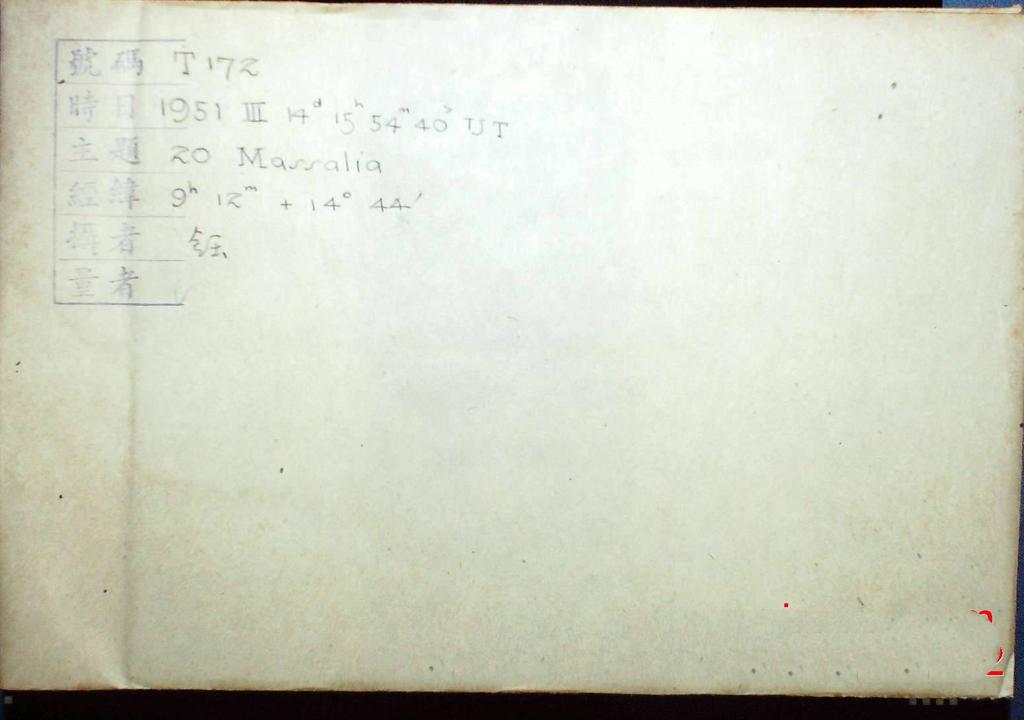 號碼 T 172
時日 1951 III 14ᵈ 15ʰ 54ᵐ 40ˢ UT
主題 20 Massalia
經緯 9ʰ 12ᵐ + 14° 44′
攝者
量者